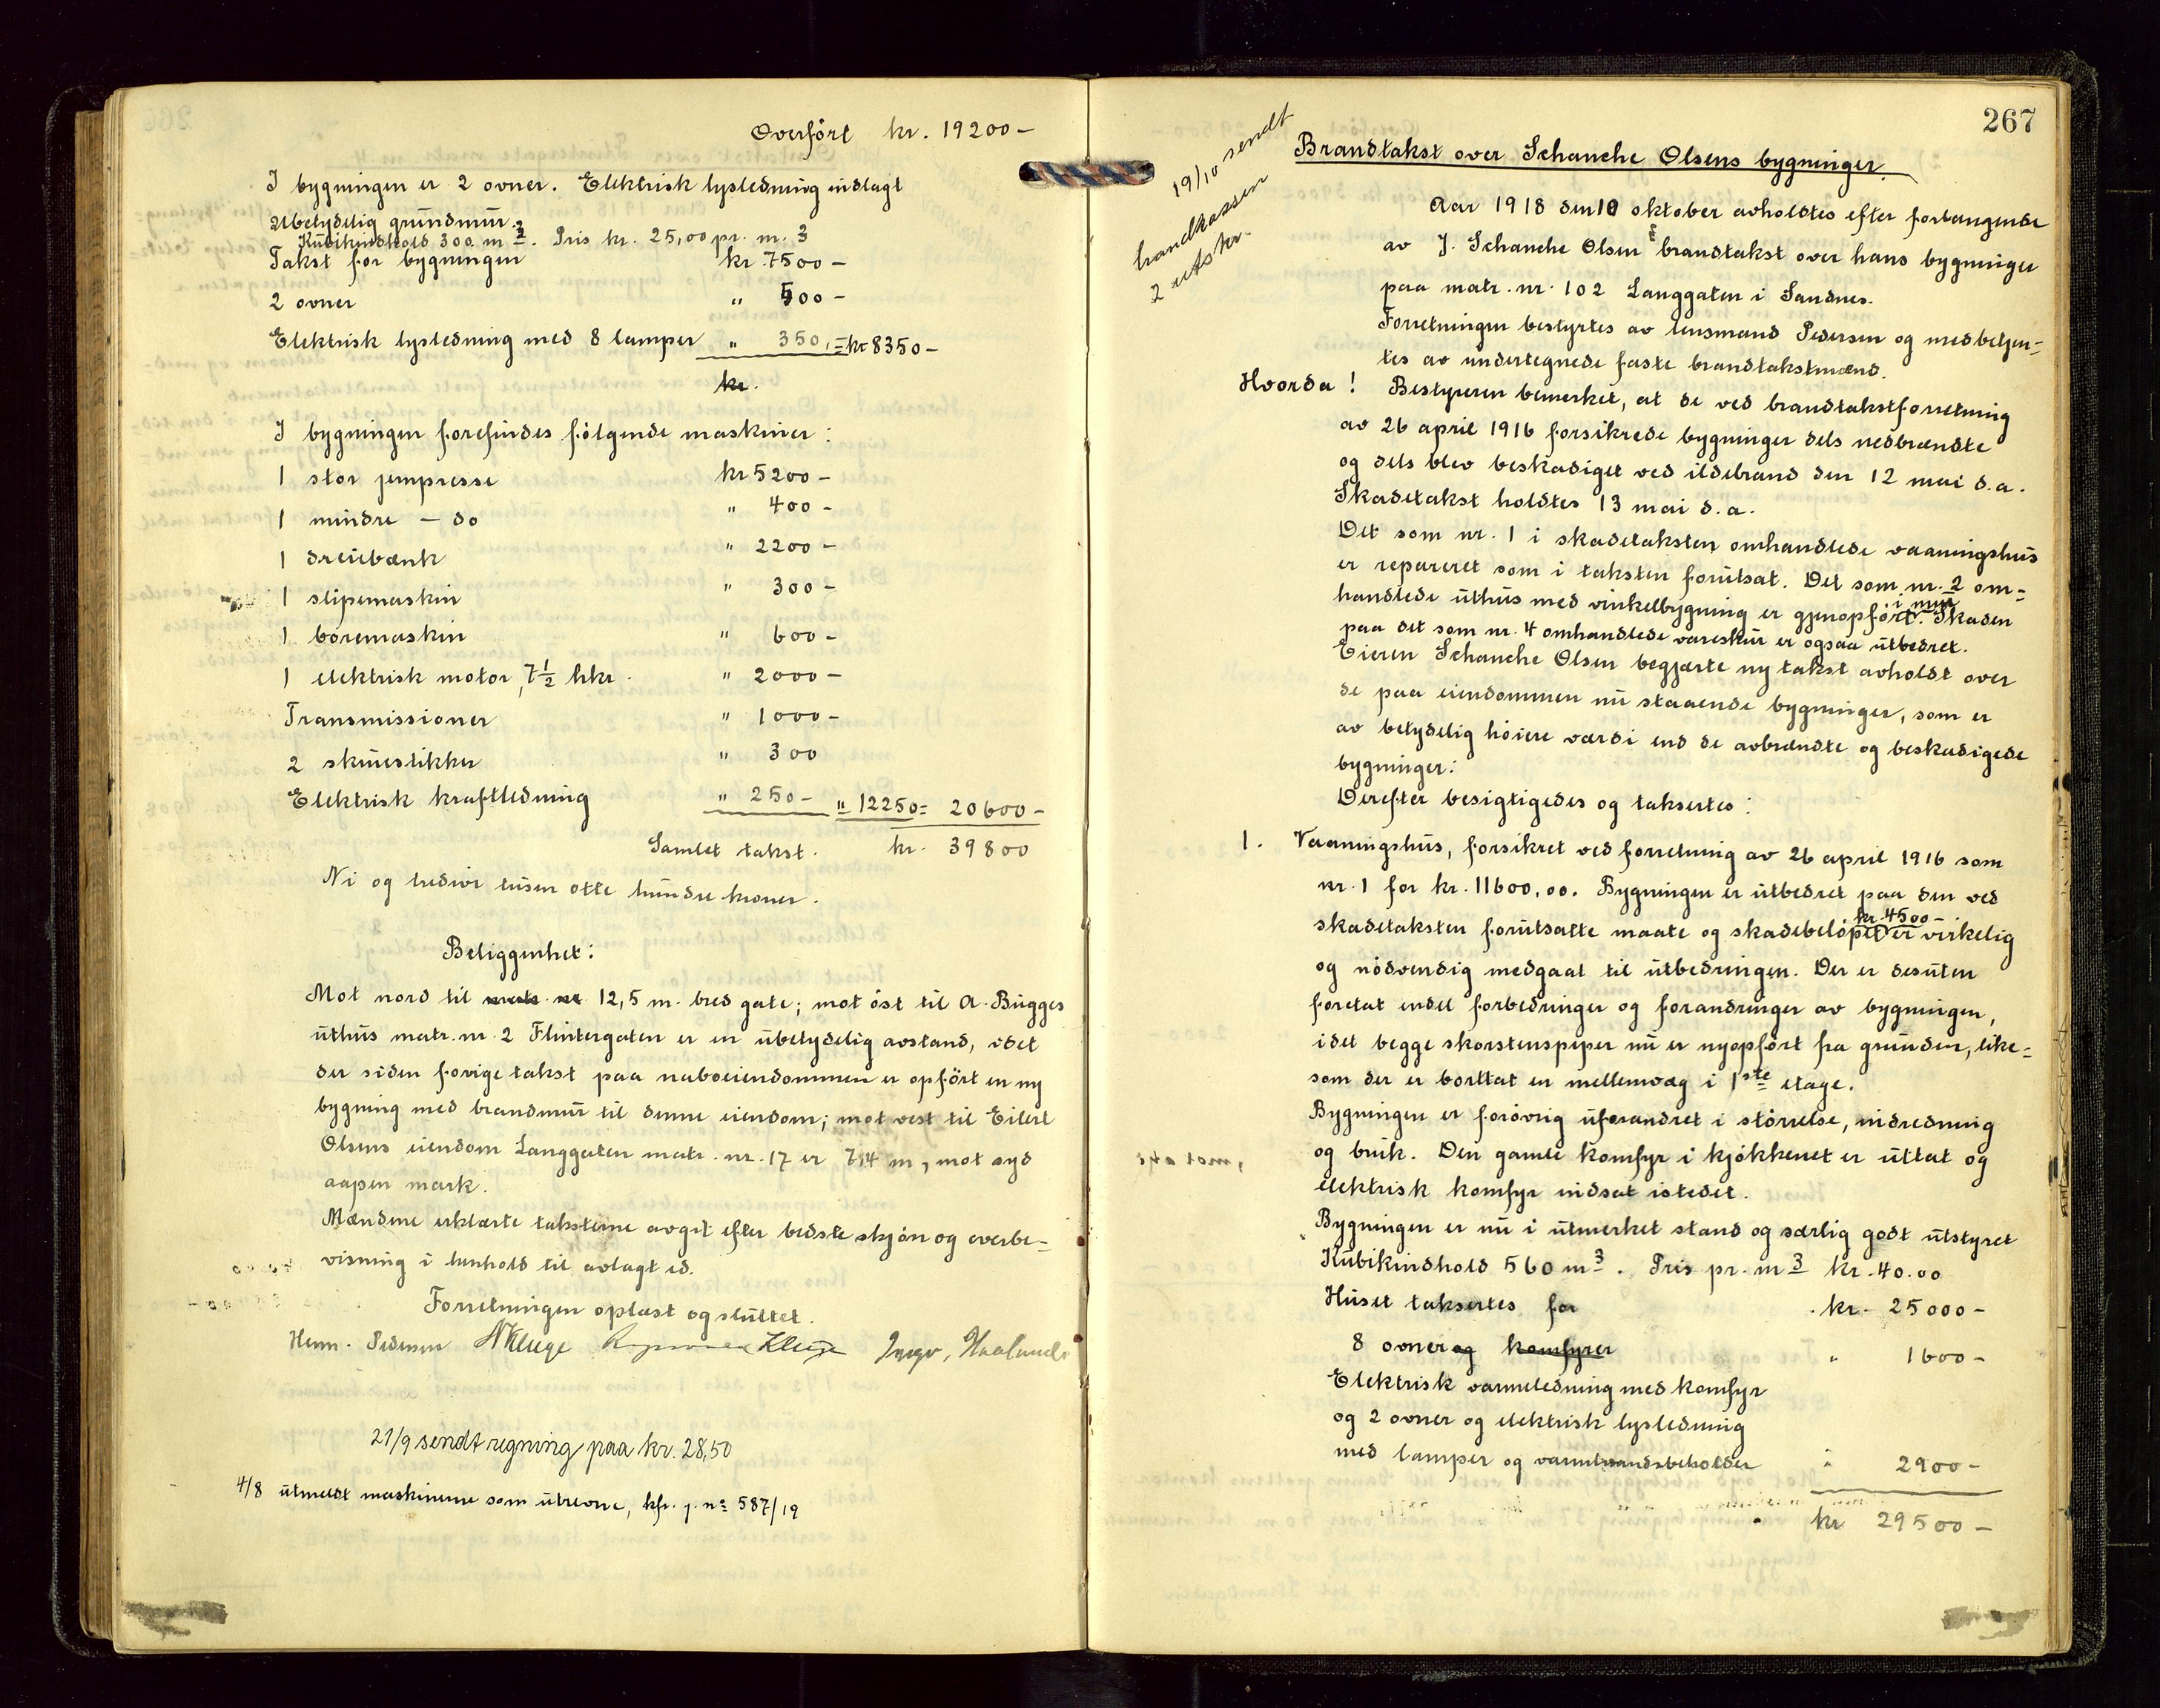 Overført kr. 19200 -
I bygningen er 2 ovner. Elektrisk lysledning indlagt
Ubetydelig grundmur.
Kubikindhold 300 m 3. Pris kr. 25,00 pr. m. 3
Takst for bygningen kr 7500 -
2 ovner " 500 -
Elektrisk lysledning med 8 lamper " 350,- = kr 8350 -
kr.
I bygningen forefindes følgende maskiner:
1 stor jernpresse kr 5200 -
1 mindre - do " 400 -
1 dreiebænk " 2200 -
1 slipemaskin " 300 -
1 boremaskin " 600 -
1 elektrisk motor, 7 1/2 hkr. " 2000 -
Transmissioner " 1000 -
2 skruestikker " 300
Elektrisk kraftledning " 250 - " 12250 = 20600 -
Samlet takst. kr. 39800
Ni og tredive tusen otte hundre kroner.
Beliggenhet:
Mot nord til matr. nr 12,5 m. bred gate; mot øst til A. Bugges
uthus matr. nr. 2 Flintergaten er en ubetydelig avstand, idet
der siden forige takst paa naboeiendommen er opført en ny
bygning med brandmur til denne eiendom; mot vest til Eilert
Olsens eiendom Langgaten matr. nr. 17 er 7,4 m, mot syd
aapen mark.
Mændene erklærte taksterne avgit efter bedste skjøn og overbe-
visning i henhold til avlagt ed.
Forretningen oplæst og sluttet.
Henn. Pedersen N Kluge Kluge Ingv. Haaland
21/9 sendt regning paa kr. 28,50
4/8 utmeldt maskinerne som utrevne, kfr. j. no 587/19
267
19/10 sendt
brandkassen
2 utskr.
Brandtakst over Schanche Olsens bygninger.
Aar 1918 den 10 oktober avholdtes efter forlangende
av J. Schanche Olsen brandtakst over hans bygninger
paa matr. nr. 102 Langgaten i Sandnes.
Forretningen bestyrtes av lensmand Pedersen og medbetjen-
tes av undertegnede faste brandtakstmænd.
Hvorda! Bestyreren bemerket, at de ved brandtakstforretning
av 26 april 1916 forsikrede bygninger dels nedbrændte
og dels blev beskadiget ved ildebrand den 12 mai d.a.
Skadetakst holdtes 13 mai d.a.
Det som nr. 1 i skadetaksten omhandlede vaaningshus
er repareret som i taksten forutsat. Det som nr. 2 om-
handlede uthus med vinkelbygning er gjenopført i mur. Skaden
paa det som nr. 4 omhandlede vareskur er ogsaa utbedret.
Eieren Schanche Olsen begjærte ny takst avholdt over
de paa eiendommen nu staaende bygninger, som er
av betydelig høiere værdi end de avbrændte og beskadigede
bygninger:
Derefter besigtigedes og taksertes:
1. Vaaningshus, forsikret ved forretning av 26 april 1916 som
nr. 1 for kr. 11600,00. Bygningen er utbedret paa den ved
skadetaksten forutsatte maate og skadebeløpet kr. 4500 - er virkelig
og nødvendig medgaat til utbedringen. Der er desuten
foretat endel forbedringer og forandringer av bygningen,
idet begge skorstenspiper nu er nyopført fra grunden, like-
som der er borttat en mellemvæg i 1ste etage.
Bygningen er forøvrig uforandret i størrelse, indredning
og bruk. Den gamle komfyr i kjøkkenet er uttat og
elektrisk komfyr indsat istedet.
Bygningen er nu i utmerket stand og særlig godt utstyret
Kubikindhold 560 m 3. Pris pr. m 3 kr. 40.00
Huset taksertes for kr. 25000 -
8 ovner og komfyrer " 1600 -
Elektrisk varmeledning med komfyr
og 2 ovner og elektrisk lysledning
med lamper og varmtvandsbeholder " 2900 -
kr 29500 -